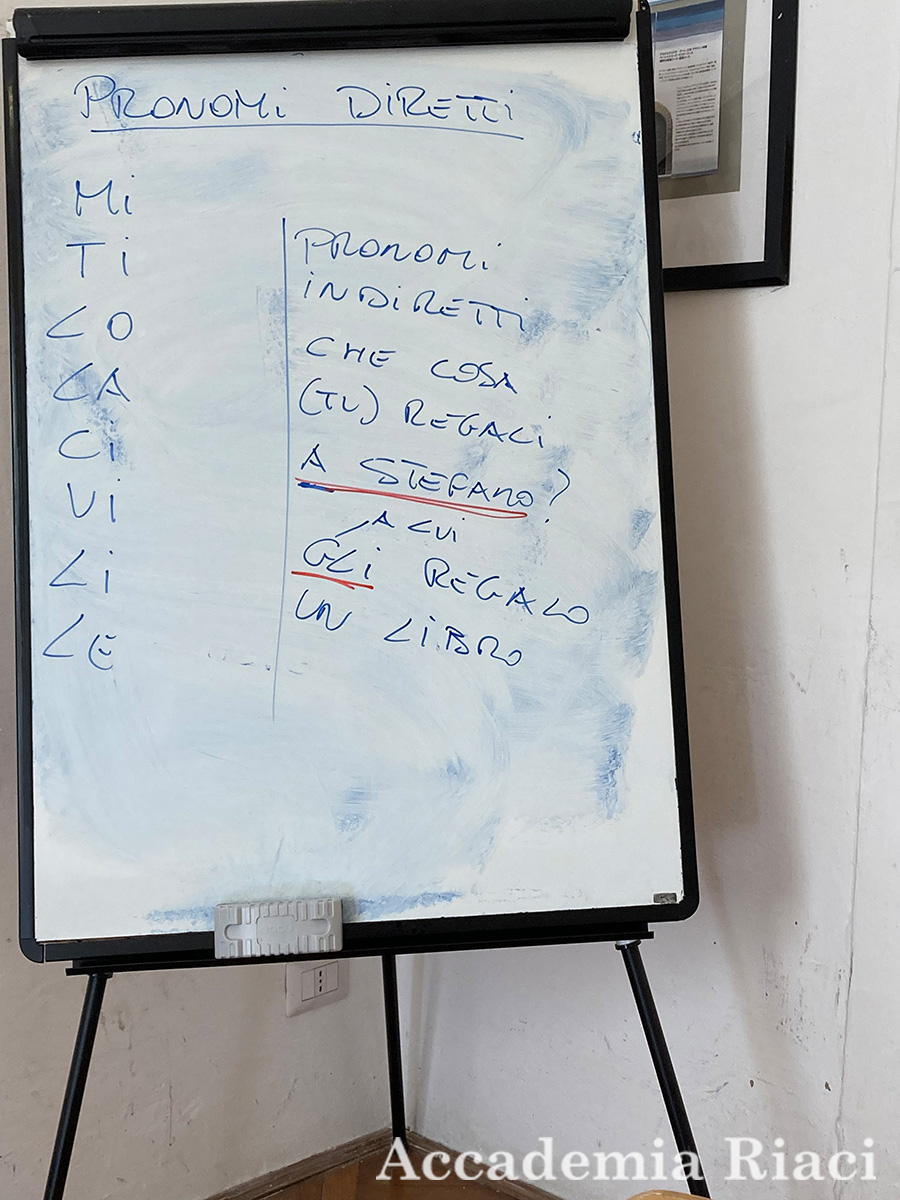 PRONOMI DIRETTI
MI
TI
LO
LA
CI
VI
LI
LE
PRONOMI
INDIRETTI
CHE COSA
(TU) REGALI
A STEFANO?
A LUI
GLI REGALO
UN LIBRO
Accademia Riaci